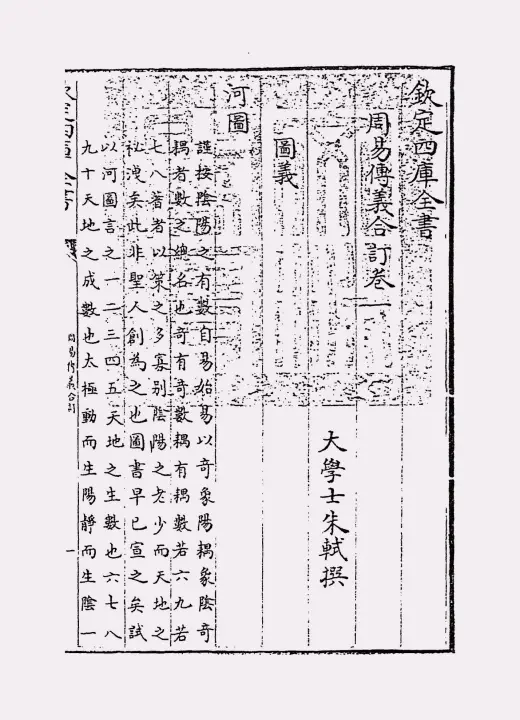 欽定四庫全書
周易傳義合訂卷一
大學士朱軾撰
圖義
河圖
謹按陰陽之有數自易始易以奇象陽耦象陰奇
耦者數之總名也奇有奇數耦有耦數若六九若
七八蓍者以策之多寡別陰陽之老少而天地之
祕洩矣此非聖人創為之也圖書早已宣之矣試
以河圖言之一二三四五天地之生數也六七八
九十天地之成數也太極動而生陽靜而生陰一
欽定四庫全書
周易傳義合訂
一